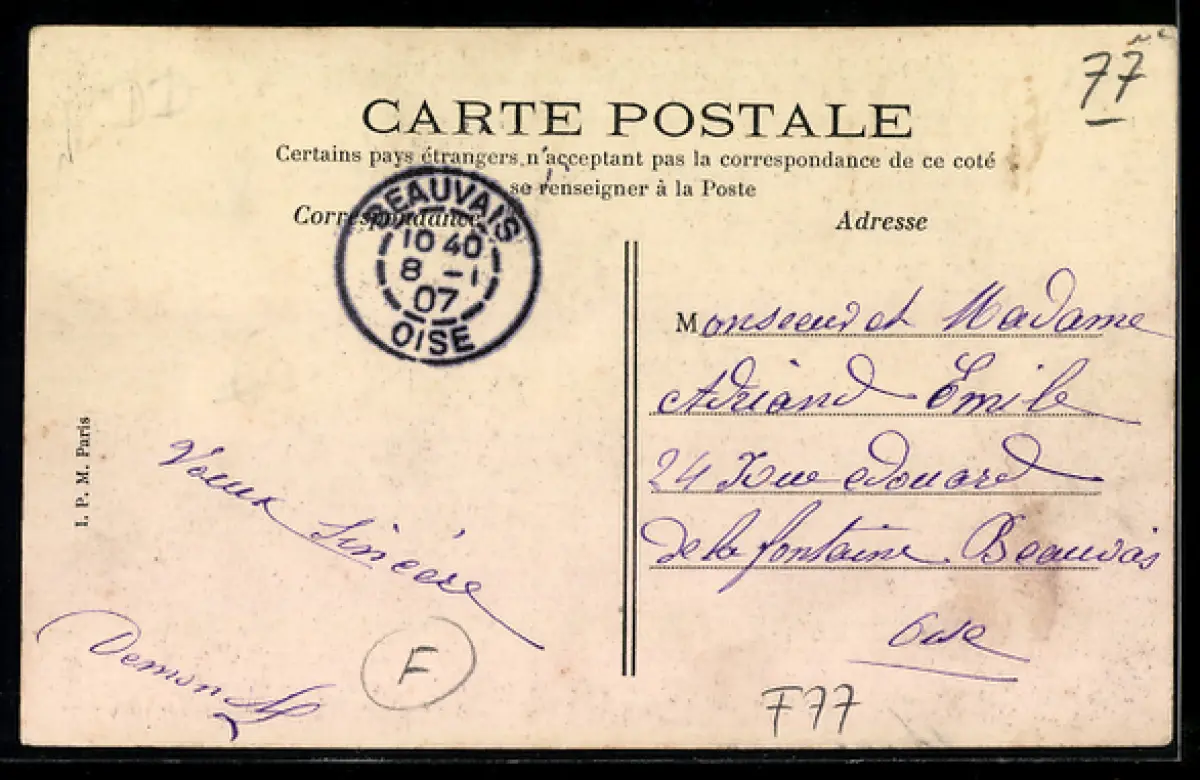 77
CARTE POSTALE
Certains pays étrangers n'acceptant pas la correspondance de ce coté
se renseigner à la Poste
Correspondance
Adresse
BEAUVAIS
10 40
8 - 1
07
OISE
Monsieur et Madame
Adriand Emile
24 Rue edouard
de la fontaine Beauvais
Oise
I. P. M. Paris
Voeux Sincère
F
F77